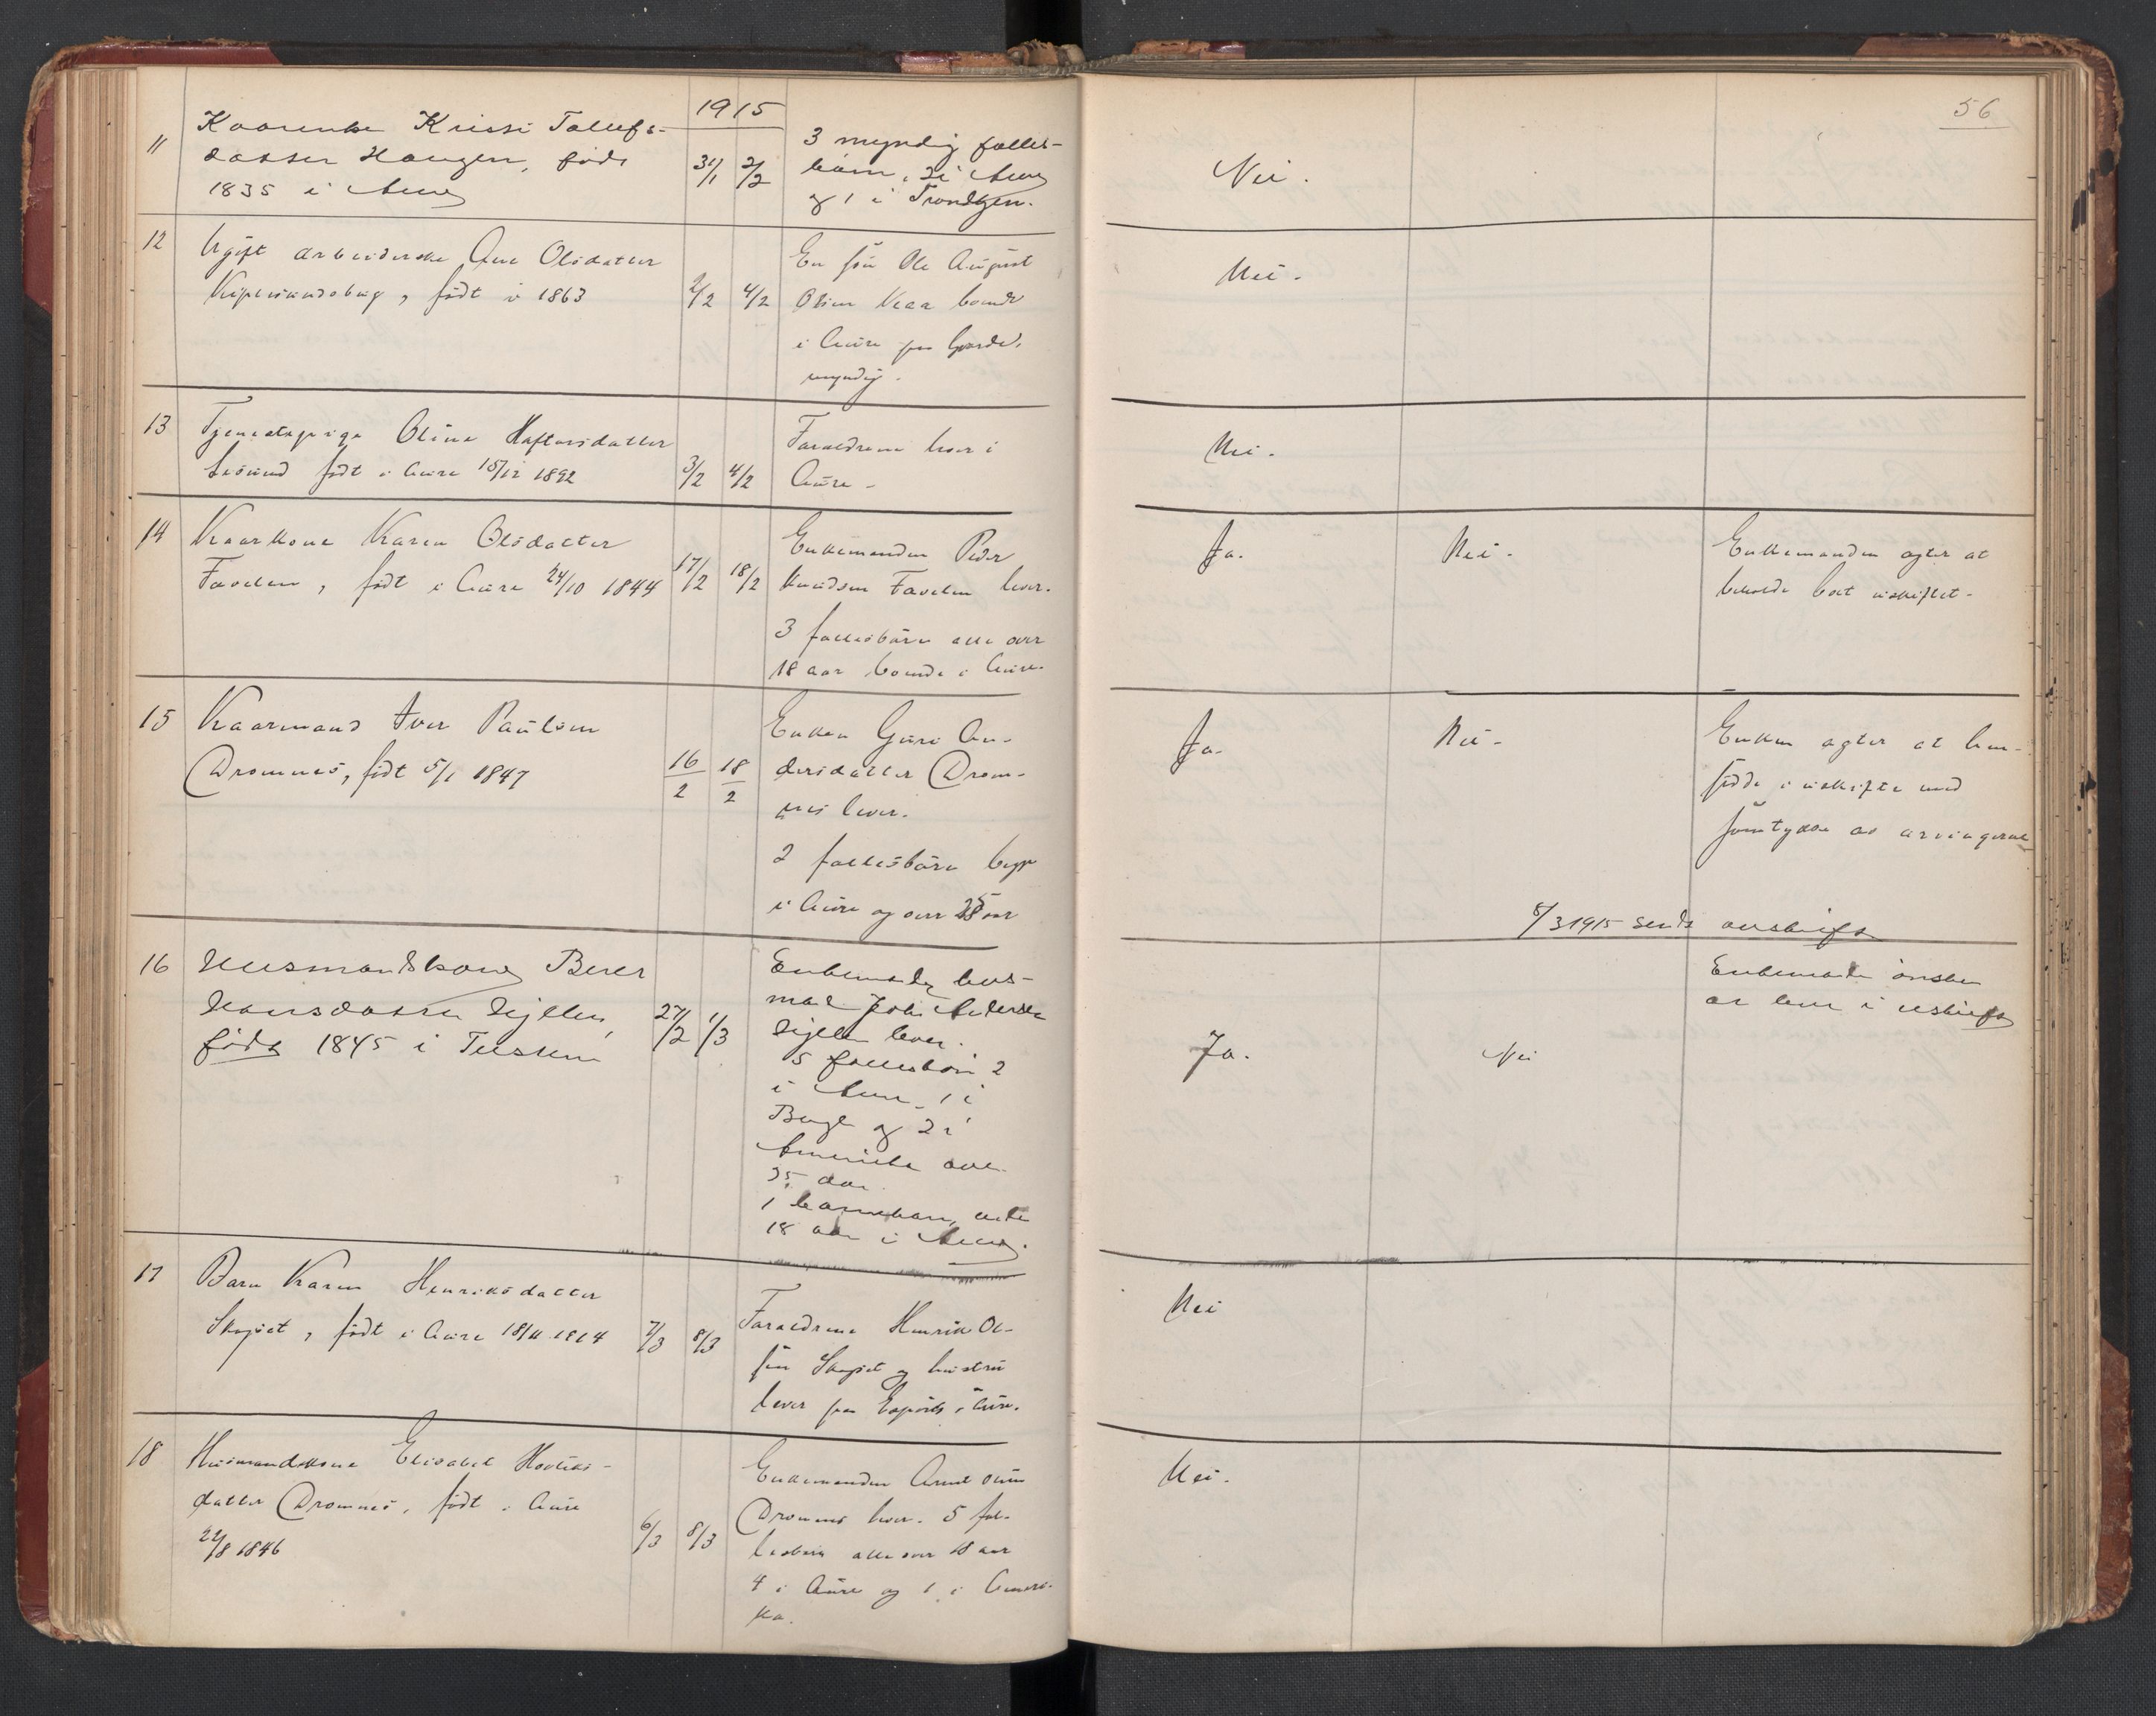 1915
56
11
Kaarenke Krissi Tollefs-
datter Haugen, født
1835 i Aure
31/1 2/2
3 myndig fælles-
børn, 2 i Aure
og 1 i Trondhjem.
Nei.
12
Ugift arbeiderske Ane Olsdatter
født i 1863
2/2 4/2
En søn Ole August
Olsen Kaar boende
i Aure paa
myndig.
Nei.
13
Tjenestepige Olina Haftorsdatter
Lesund født i Aure 15/12 1892
3/2 4/2
Foraeldrene lever i
Aure -
Nei.
14
Kaarkone Karen Olsdatter
Tavelen, født i Aure 24/10 1844
17/2 18/2
Enkemanden Peder
Knudsen Tavelen lever.
3 fællesbørn alle over
18 aar boende i Aure.
Ja.
Nei.
Enkemanden agter at
beholde boet uskiftet.
15
Kaarmand Iver Paulsen
Dromnes, født 5/1 1847
16/2 18/2
Enken Guri An-
dersdatter Drom-
nes lever.
2 fællesbørn begge
i Aure og over 25 aar
Ja.
Nei.
Enken agter at hen-
sidde i uskifte med
samtykke av arvingerne
8/3 1915 sendt avskrift
16
Husmandskone Beret
Hansdatter
født 1845 i Tustern
27/2 1/3
Enkemand hus-
mand John Andersen
lever.
5 fællesbørn 2
i Aure, 1 i
og 2 i
Amerika over
25 aar
1 barnebarn, under
18 aar i Aure.
Ja.
Nei
Enkemanden ønsker
at leve i uskifte
17
Barn Karen Henriksdatter
født i Aure 18/11 1914
7/3 8/3
Foraeldrene Henrik Ol-
sen og hustru
lever paa i Aure.
Nei
18
Husmandskone Elisabet
datter Dromnes, født i Aure
22/8 1846
6/3 8/3
Enkemanden Arnt
Dromnes lever. 5 fæl-
lesbørn alle over 18 aar
4 i Aure og 1 i Ameri-
ka.
Nei.